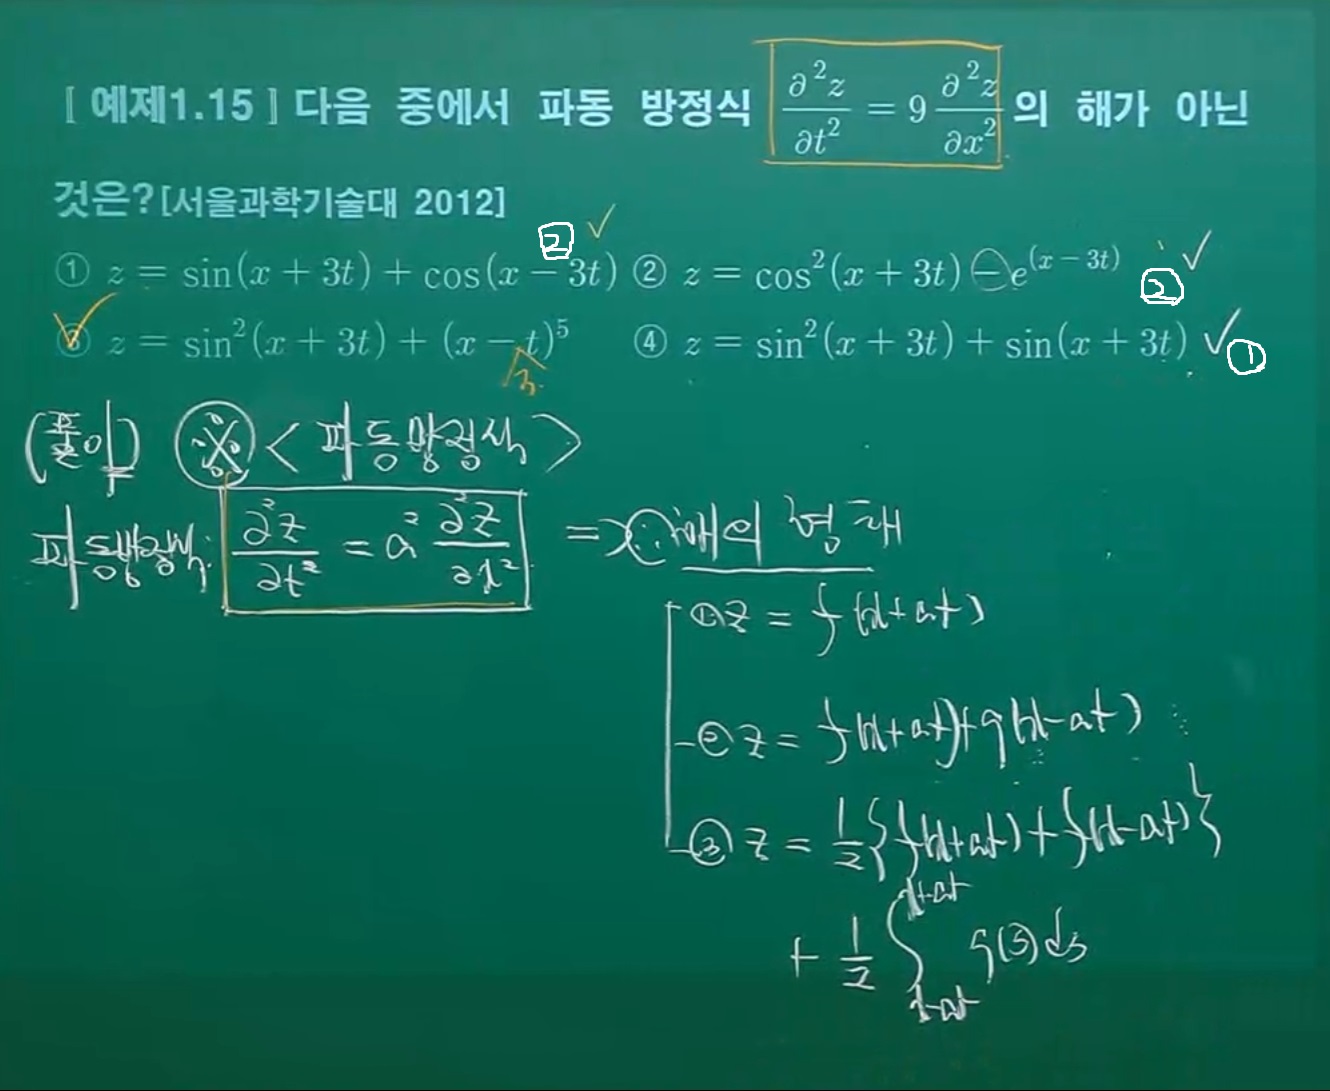 [ 예제1.15 ] 다음 중에서 파동 방정식 ∂²z/∂t² = 9 ∂²z/∂x² 의 해가 아닌
것은? [서울과학기술대 2012]
① z = sin(x + 3t) + cos(x − 3t) ② ② z = cos²(x + 3t) − e^(x − 3t) ②
③ z = sin²(x + 3t) + (x − t)⁵ 3 ④ z = sin²(x + 3t) + sin(x + 3t) ①
(풀이) ※ < 파동방정식 >
파동방정식: ∂²z/∂t² = a² ∂²z/∂x² ⇒ 해의 형태
① z = f(x+at)
② z = f(x+at)+g(x-at)
③ z = 1/2{f(x+at)+f(x-at)}
+ 1/2 ∫_{x-at}^{x+at} g(s)ds